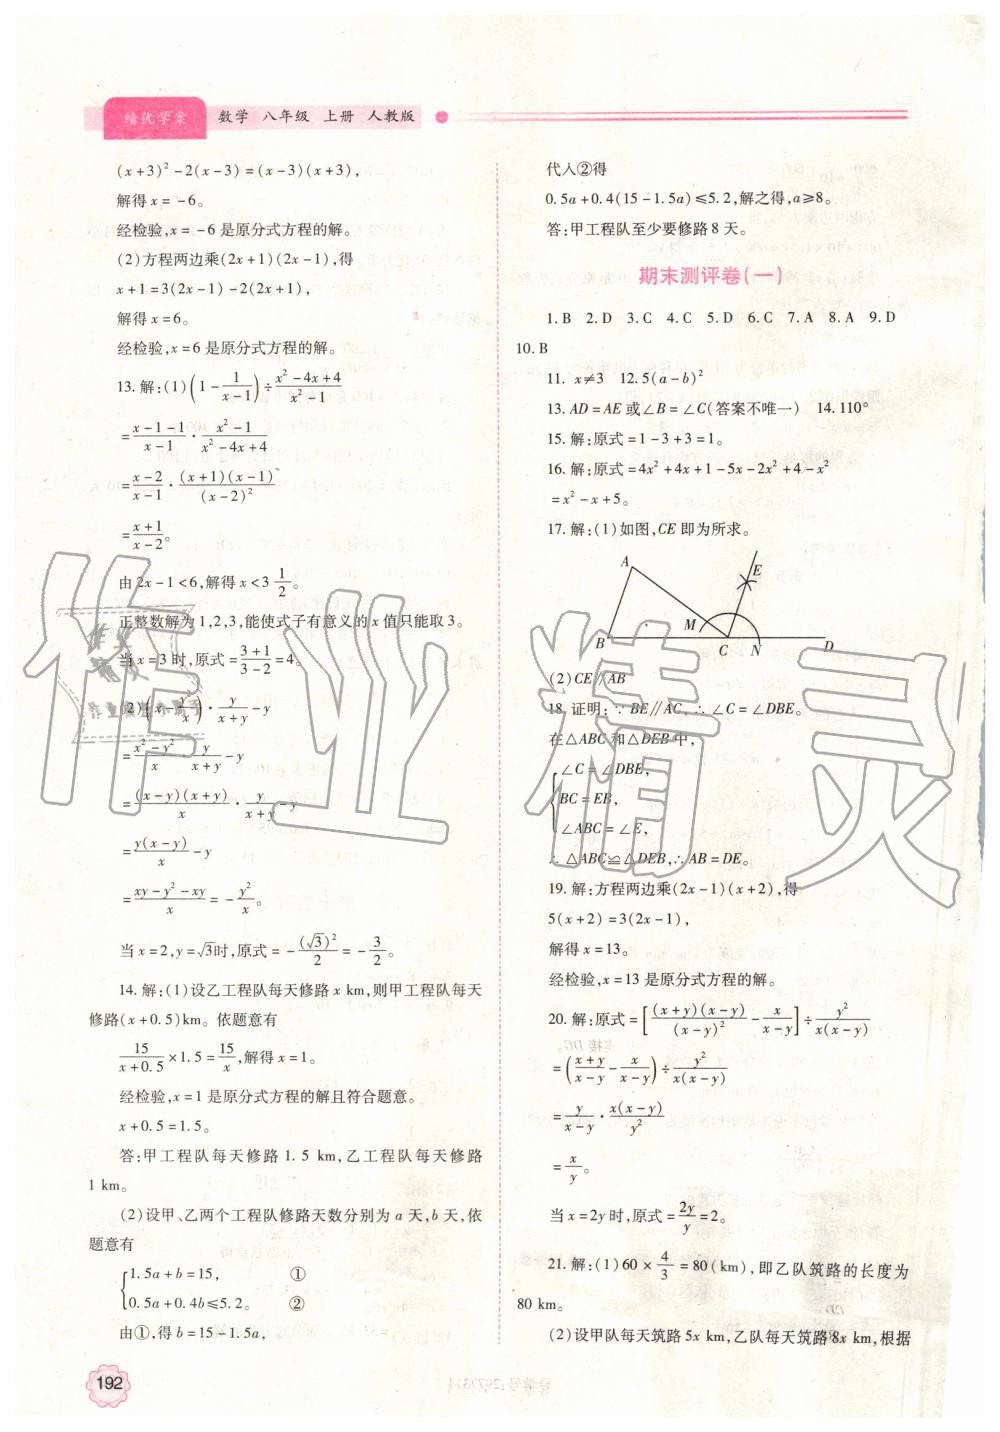 绩优学案 数学 八年级 上册 人教版
(x+3)²-2(x-3)=(x-3)(x+3),
解得x=-6。
经检验,x=-6是原分式方程的解。
(2)方程两边乘(2x+1)(2x-1),得
x+1=3(2x-1)-2(2x+1),
解得x=6。
经检验,x=6是原分式方程的解。
13.解:(1)(1-1/(x-1))÷(x²-4x+4)/(x²-1)
=(x-1-1)/(x-1)·(x²-1)/(x²-4x+4)
=(x-2)/(x-1)·(x+1)(x-1)/(x-2)²
=(x+1)/(x-2)。
由2x-1<6,解得x<3 1/2。
正整数解为1,2,3,能使式子有意义的x值只能取3。
当x=3时,原式=(3+1)/(3-2)=4。
(2)(x-y²/x)·y/(x+y)-y
=(x²-y²)/x·y/(x+y)-y
=(x-y)(x+y)/x·y/(x+y)-y
=y(x-y)/x-y
=(xy-y²-xy)/x=-y²/x。
当x=2,y=√3时,原式=-(√3)²/2=-3/2。
14.解:(1)设乙工程队每天修路x km,则甲工程队每天
修路(x+0.5)km。依题意有
15/(x+0.5)×1.5=15/x,解得x=1。
经检验,x=1是原分式方程的解且符合题意。
x+0.5=1.5。
答:甲工程队每天修路1.5 km,乙工程队每天修路
1 km。
(2)设甲、乙两个工程队修路天数分别为a天,b天,依
题意有
{1.5a+b=15, ①
0.5a+0.4b≤5.2。 ②
由①,得b=15-1.5a,
192
代入②得
0.5a+0.4(15-1.5a)≤5.2,解之得,a≥8。
答:甲工程队至少要修路8天。
期末测评卷(一)
1.B 2.D 3.C 4.C 5.D 6.C 7.A 8.A 9.D
10.B
11. x≠3 12.5(a-b)²
13.AD=AE或∠B=∠C(答案不唯一) 14.110°
15.解:原式=1-3+3=1。
16.解:原式=4x²+4x+1-5x-2x²+4-x²
=x²-x+5。
17.解:(1)如图,CE即为所求。
A E
M
B C N D
(2)CE∥AB
18.证明:∵BE∥AC,∴∠C=∠DBE。
在△ABC和△DEB中,
{∠C=∠DBE,
BC=EB,
∠ABC=∠E,
∴△ABC≌△DEB,∴AB=DE。
19.解:方程两边乘(2x-1)(x+2),得
5(x+2)=3(2x-1),
解得x=13。
经检验,x=13是原分式方程的解。
20.解:原式=[(x+y)(x-y)/(x-y)²-x/(x-y)]÷y²/x(x-y)
=((x+y)/(x-y)-x/(x-y))÷y²/x(x-y)
=y/(x-y)·x(x-y)/y²
=x/y。
当x=2y时,原式=2y/y=2。
21.解:(1)60×4/3=80(km),即乙队筑路的长度为
80 km。
(2)设甲队每天筑路5x km,乙队每天筑路8x km,根据
作业精灵